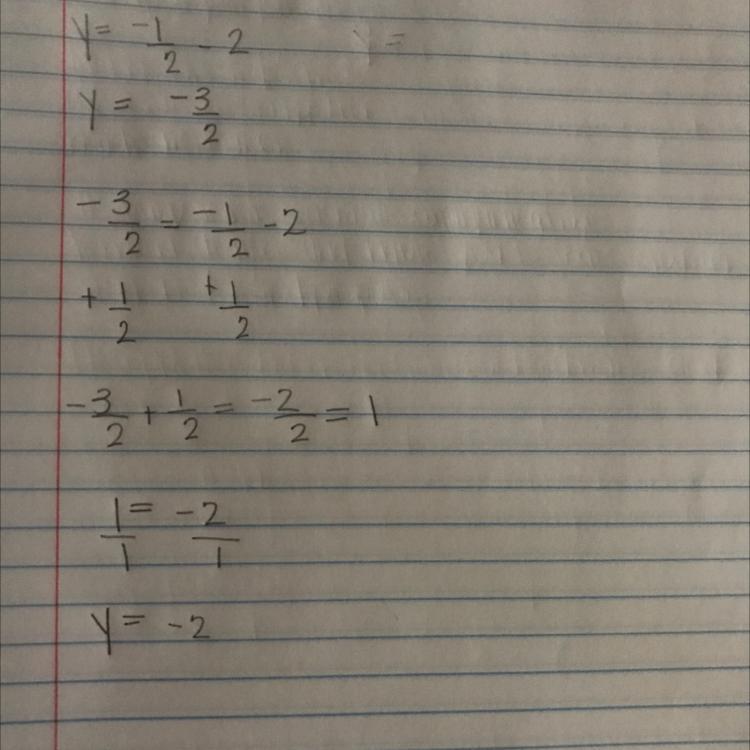 y = -1/2 - 2 y =
y = -3/2
-3/2 = -1/2 - 2
+ 1/2 + 1/2
-3/2 + 1/2 = -2/2 = 1
1/1 = -2/1
y = -2